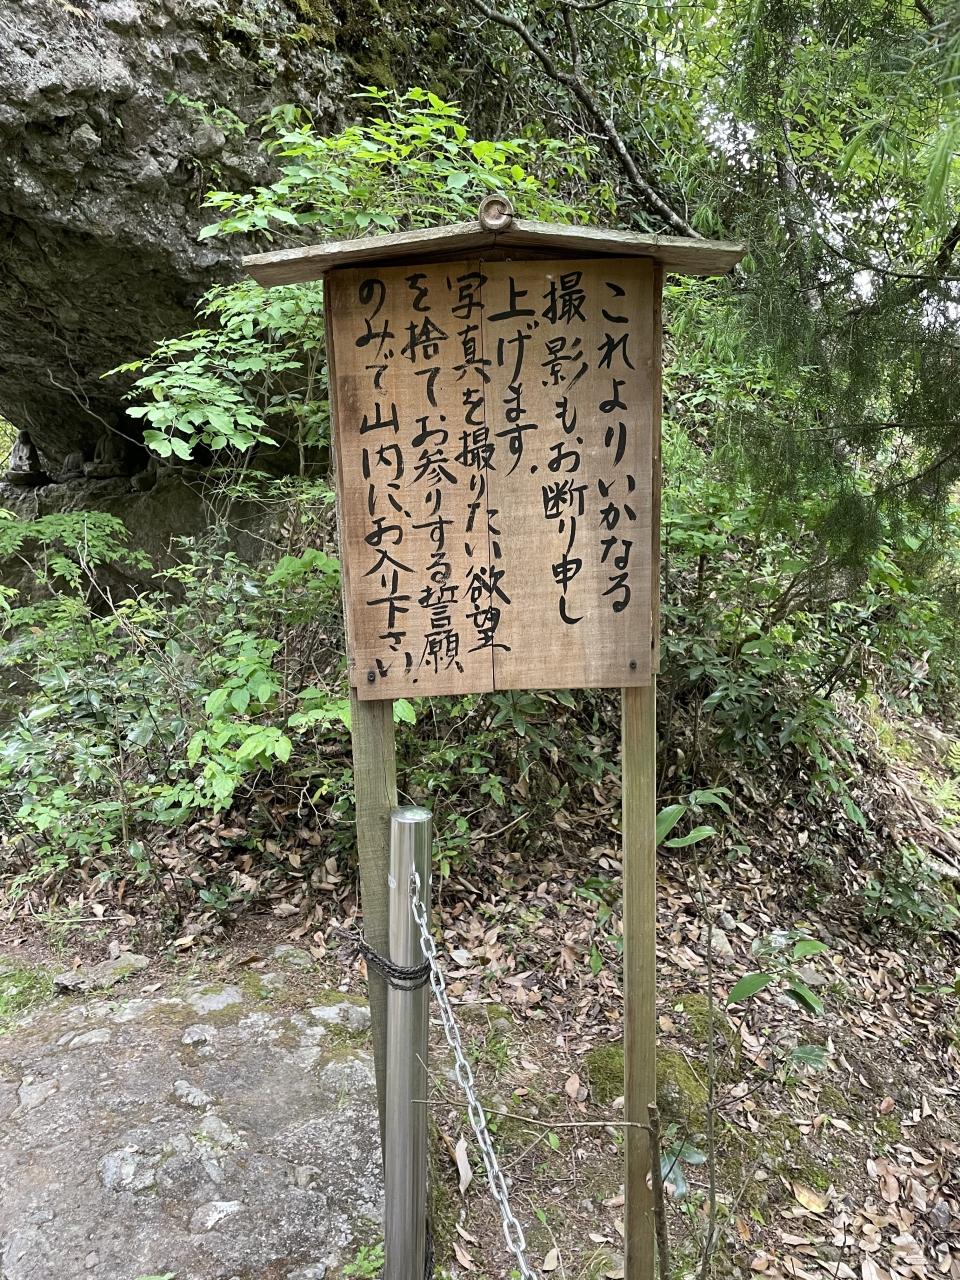 これよりいかなる
撮影もお断り申し
上げます。
写真を撮りたい欲望
を捨てお参りする誓願
のみで山内に、お入り下さい。